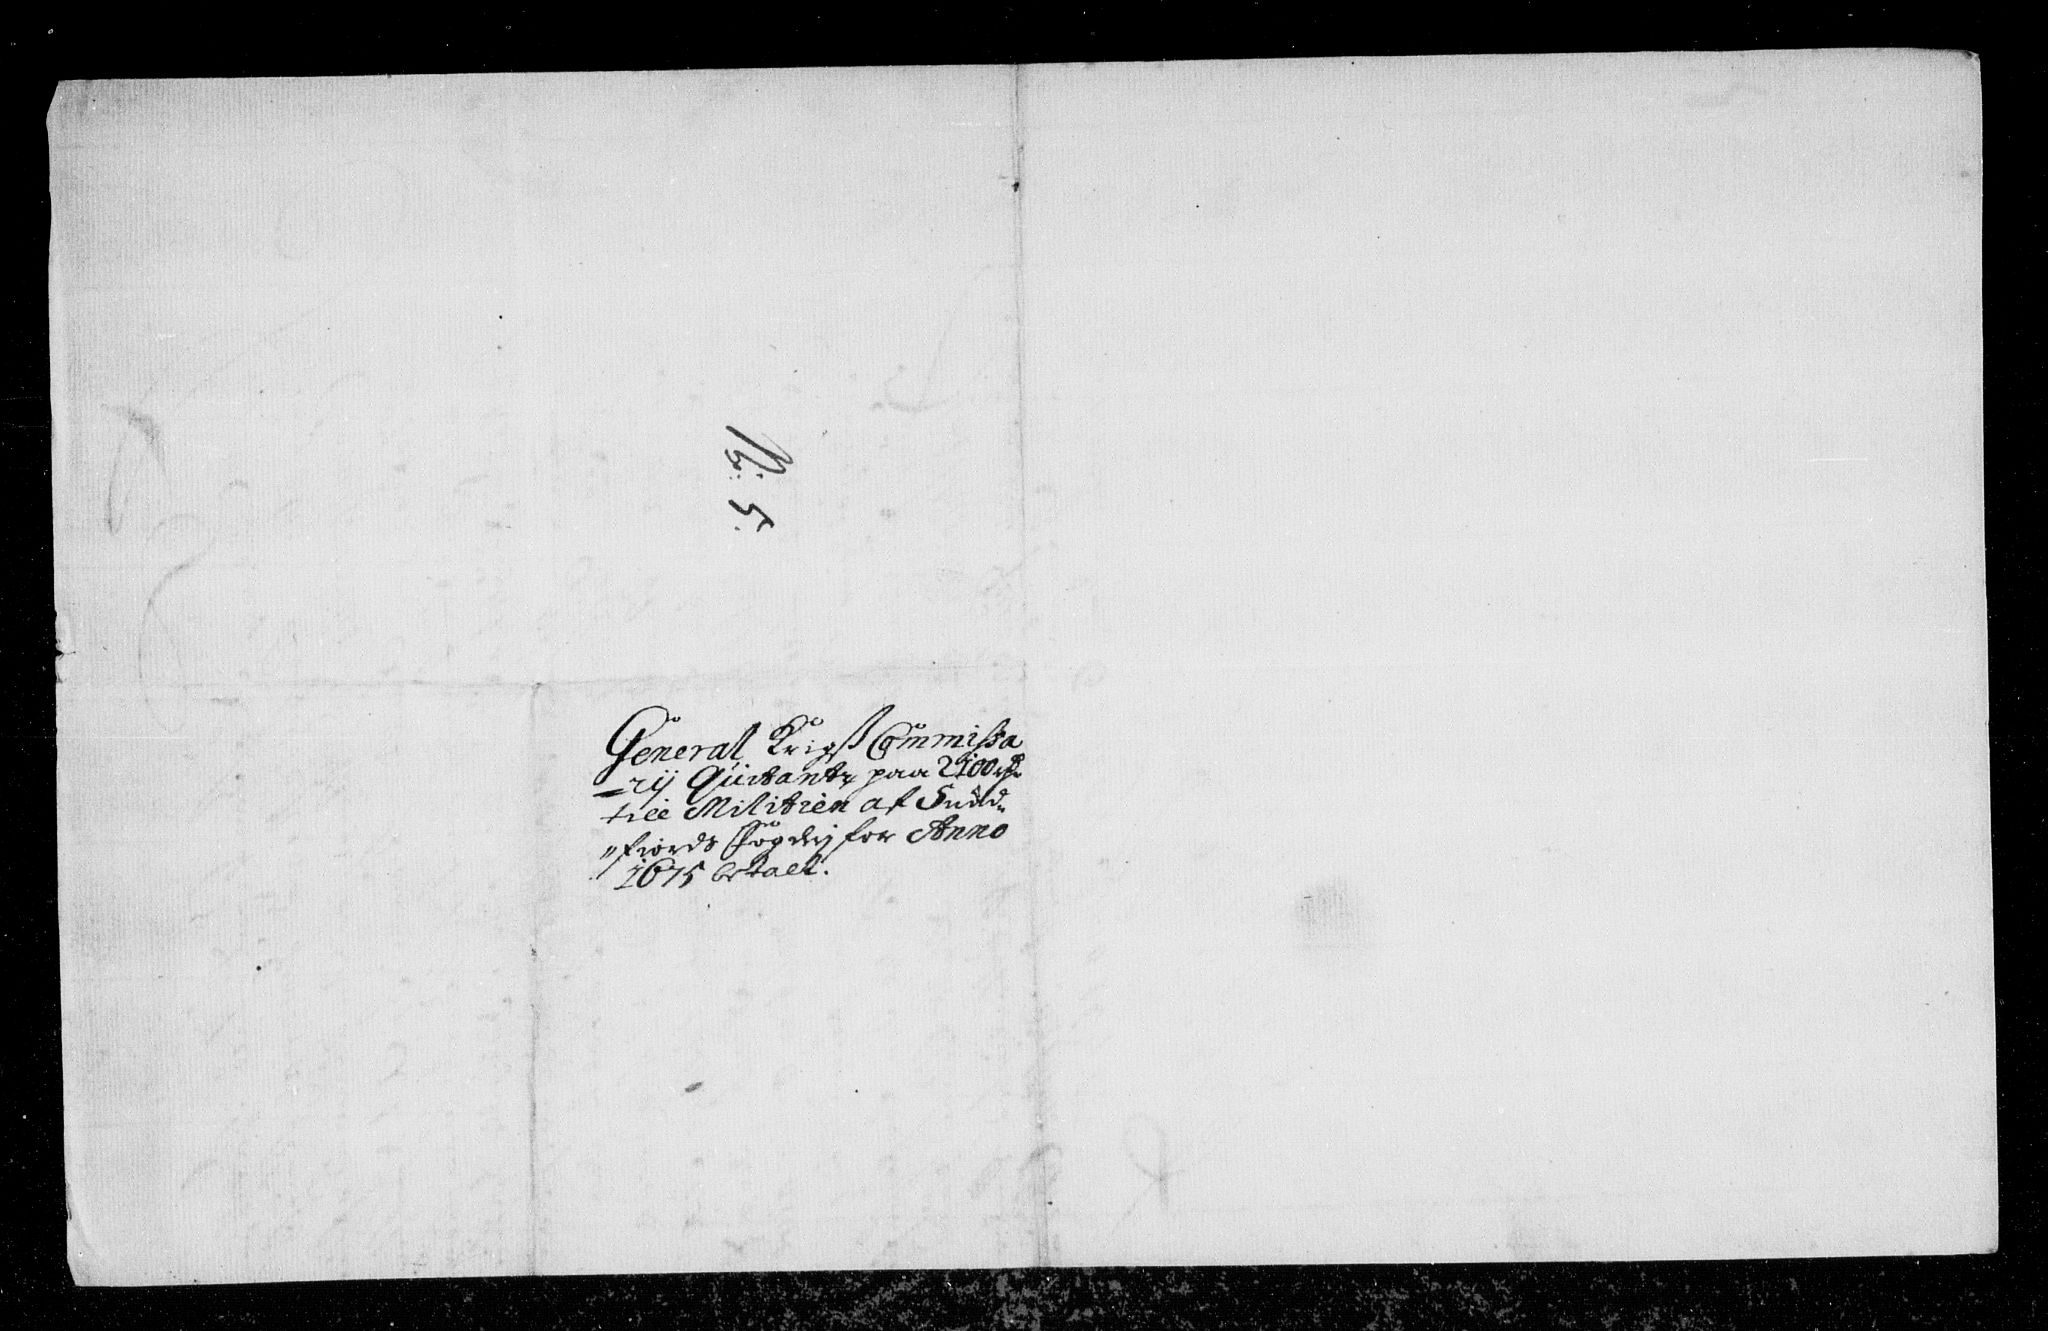 No: 5.
General Krigs Commissa
=rij Quitantz paa 2100 rdr
till Militien af Sund=
"fiords Fogderij for Anno
1675 betalt.